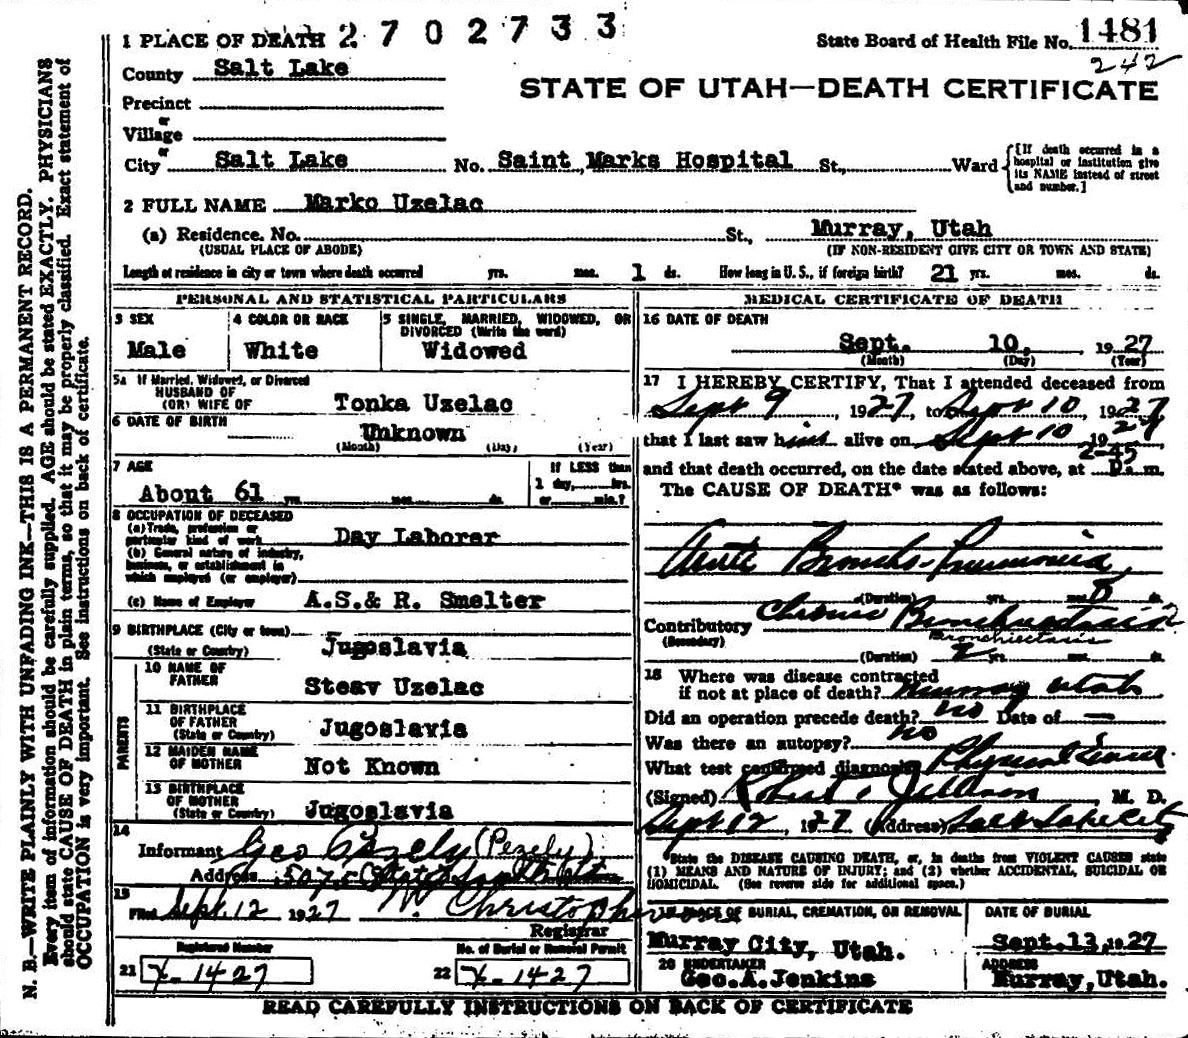 1 PLACE OF DEATH 2702733
State Board of Health File No. 1481
242
County Salt Lake
STATE OF UTAH—DEATH CERTIFICATE
Precinct
or
Village
or
City Salt Lake No. Saint Marks Hospital St., Ward
[If death occurred in a hospital or institution give its NAME instead of street and number.]
2 FULL NAME Marko Uzelac
(a) Residence. No. St., Murray, Utah
(USUAL PLACE OF ABODE) (IF NON-RESIDENT GIVE CITY OR TOWN AND STATE)
Length of residence in city or town where death occurred yrs. mos. 1 ds. How long in U. S., if foreign birth? 21 yrs. mos. ds.
PERSONAL AND STATISTICAL PARTICULARS
3 SEX
Male
4 COLOR OR RACE
White
5 SINGLE, MARRIED, WIDOWED, OR
DIVORCED (Write the word)
Widowed
5a If Married, Widowed, or Divorced
HUSBAND OF
(OR) WIFE OF Tonka Uzelac
6 DATE OF BIRTH Unknown
(Month) (Day) (Year)
7 AGE
About 61 yrs. mos. ds.
If LESS than
1 day, hrs.
or min.?
8 OCCUPATION OF DECEASED
(a) Trade, profession or
particular kind of work Day Laborer
(b) General nature of industry,
business, or establishment in
which employed (or employer)
(c) Name of Employer A.S.& R. Smelter
9 BIRTHPLACE (City or town)
(State or Country) Jugoslavia
PARENTS
10 NAME OF
FATHER Steav Uzelac
11 BIRTHPLACE
OF FATHER
(State or Country) Jugoslavia
12 MAIDEN NAME
OF MOTHER Not Known
13 BIRTHPLACE
OF MOTHER
(State or Country) Jugoslavia
14
Informant Geo Pezely (Pezely)
Address 5075 State
15
Filed Sept 12 1927 Christopherson
Registrar
Registered Number
21 X-1427
No. of Burial or Removal Permit
22 X-1427
MEDICAL CERTIFICATE OF DEATH
16 DATE OF DEATH
Sept. 10, 1927
(Month) (Day) (Year)
17 I HEREBY CERTIFY, That I attended deceased from
Sept 9, 1927, to Sept 10, 1927
that I last saw him alive on Sept 10 1927
2-45
and that death occurred, on the date stated above, at P.m.
The CAUSE OF DEATH* was as follows:
Acute Broncho-Pneumonia
(Duration) yrs. mos. 8 ds.
Contributory Chronic Bronchiectasis
(Secondary) Bronchiectasis
(Duration) 2 yrs. mos. ds.
18 Where was disease contracted
if not at place of death? Murray Utah
Did an operation precede death? no Date of —
Was there an autopsy? no
What test confirmed diagnosis Physical Exam
(Signed) Robert M. D.
Sept 12, 1927 (Address) Salt Lake City
*State the DISEASE CAUSING DEATH, or, in deaths from VIOLENT CAUSES state
(1) MEANS AND NATURE OF INJURY; and (2) whether ACCIDENTAL, SUICIDAL OR
HOMICIDAL. (See reverse side for additional space.)
19 PLACE OF BURIAL, CREMATION, OR REMOVAL
Murray City, Utah.
DATE OF BURIAL
Sept.13,1927
20 UNDERTAKER
Geo.A.Jenkins
ADDRESS
Murray,Utah.
READ CAREFULLY INSTRUCTIONS ON BACK OF CERTIFICATE
N. B.—WRITE PLAINLY WITH UNFADING INK—THIS IS A PERMANENT RECORD.
Every item of information should be carefully supplied. AGE should be stated EXACTLY. PHYSICIANS
should state CAUSE OF DEATH in plain terms, so that it may be properly classified. Exact statement of
OCCUPATION is very important. See instructions on back of certificate.